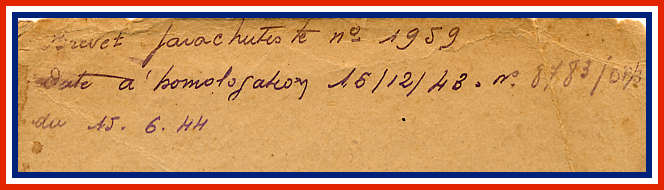 Brevet parachutiste nº 1959
Date d'homologation 15/12/43. nº 8783/
du 15. 6. 44